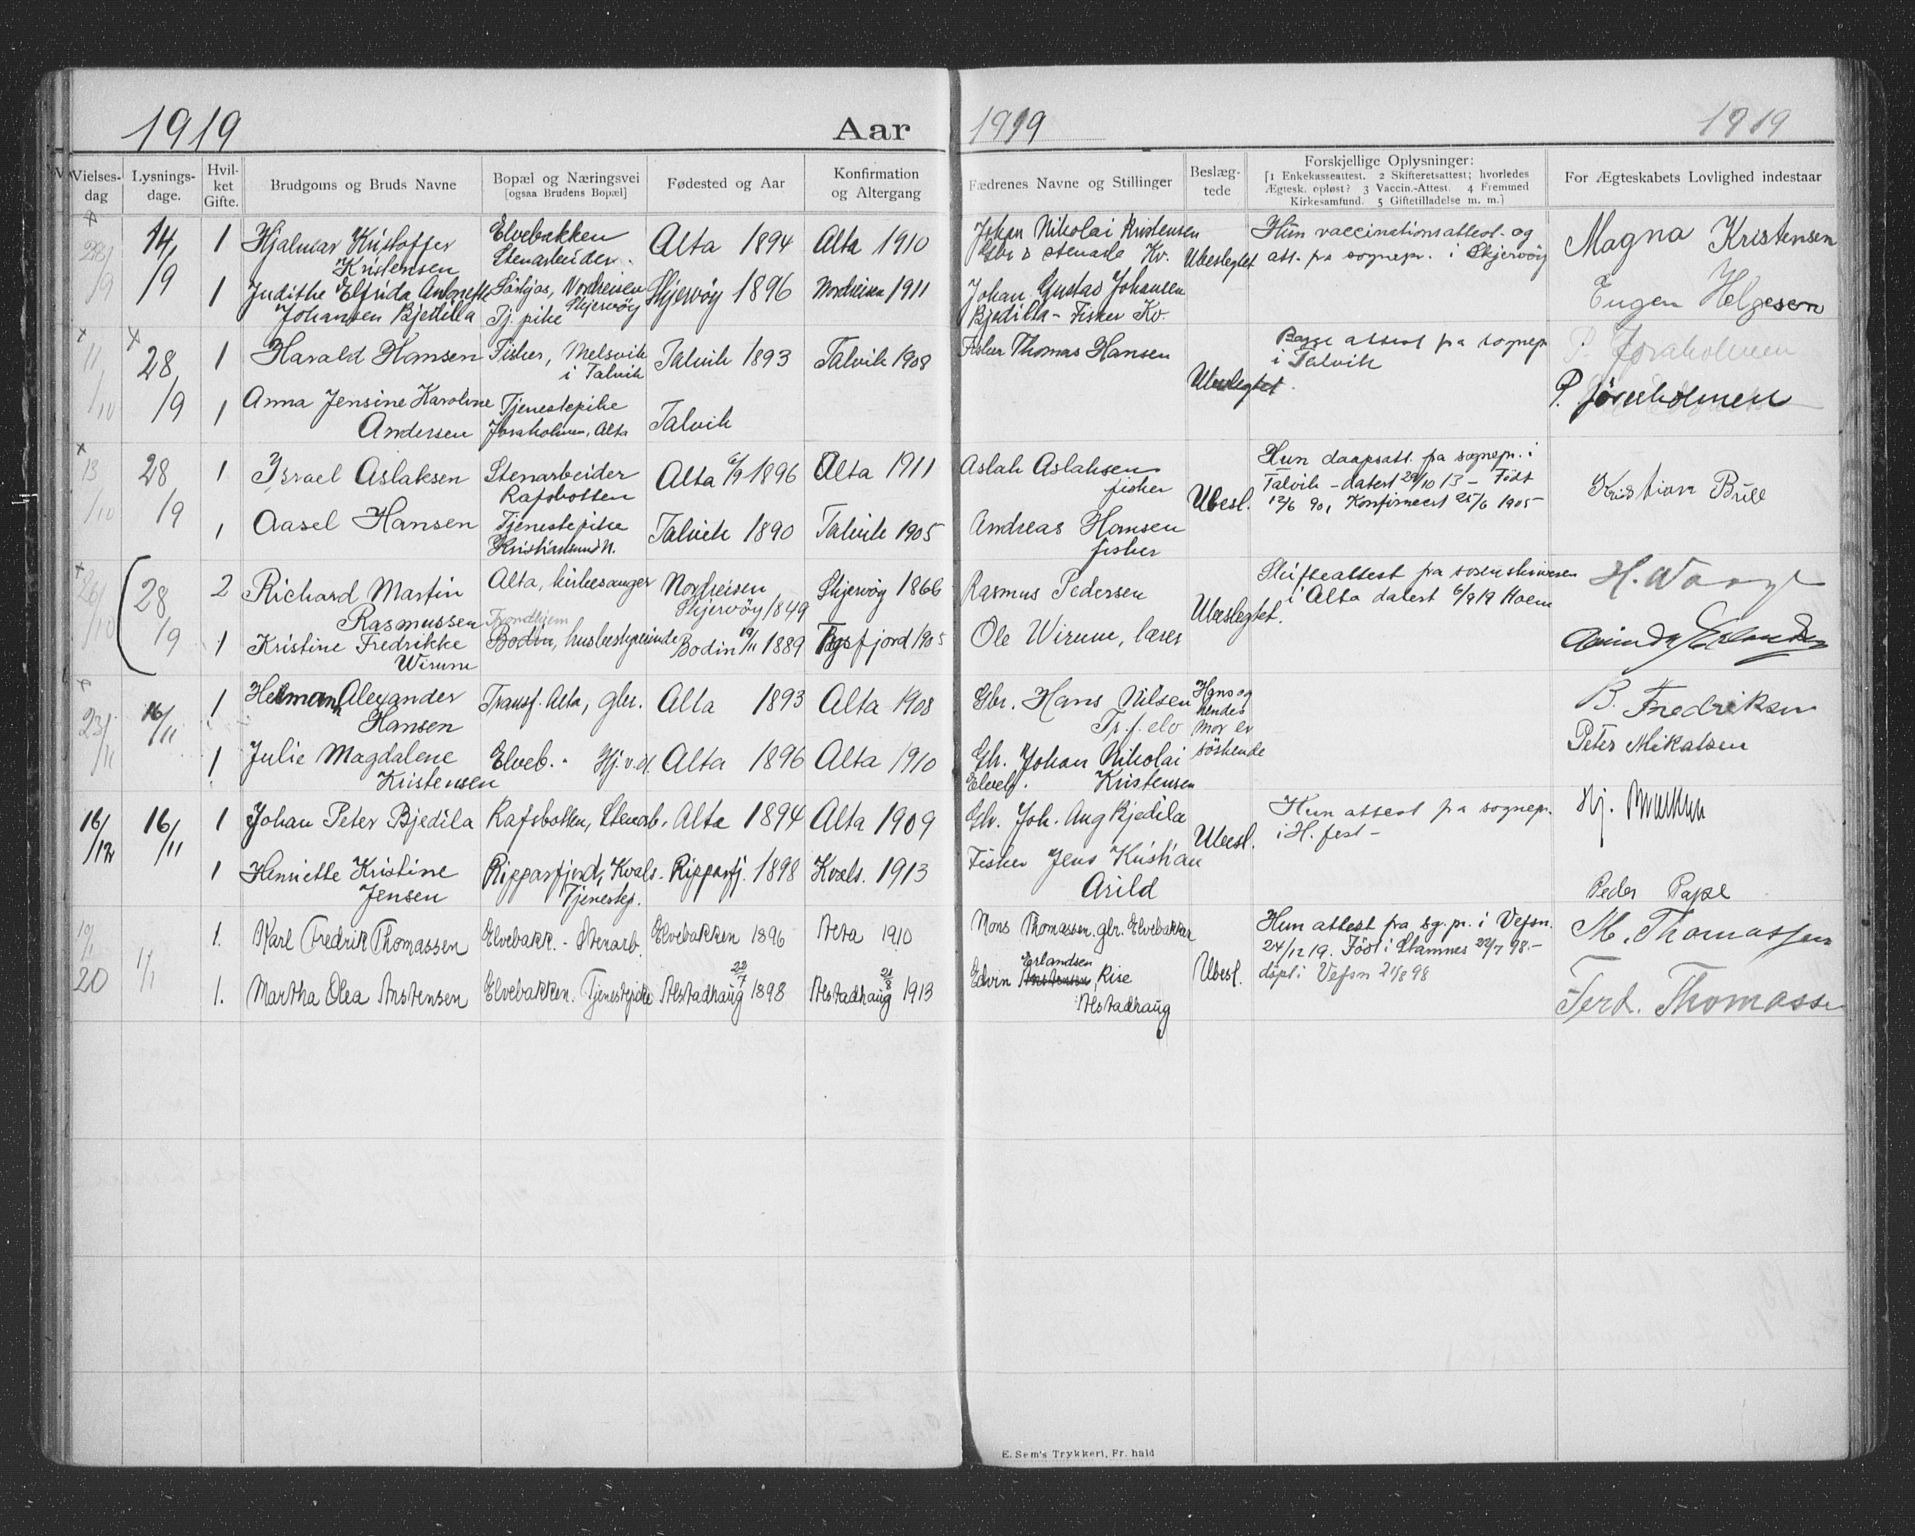 1919 Aar 1919 1919
Vielses-dag Lysnings-dage. Hvil-ket Gifte. Brudgoms og Bruds Navne Bopæl og Næringsvei [ogsaa Brudens Bopæl] Fødested og Aar Konfirmation og Altergang Fædrenes Navne og Stillinger Beslæg-tede Forskjellige Oplysninger: [1 Enkekasseattest. 2 Skifteretsattest; hvorledes Ægtesk. opløst? 3 Vaccin.-Attest. 4 Fremmed Kirkesamfund. 5 Giftetilladelse m. m.] For Ægteskabets Lovlighed indestaar
14/9 1 Hjalmar Kristoffer Kristensen Elvebakken Stenarbeider. Alta 1894 Alta 1910 Johan Nikolai Kristensen Ubeslegtet Hun vaccinationsattest og att. fra sognepr. i Skjervöy Magna Kristensen
1 Judithe Elfrida Johansen Bjedilla Nordreisen Skjervöy Tj. pike Skjervöy 1896 Nordreisen 1911 Johan Gustav Johansen Bjedilla - Fisker Kv. Eugen Helgesen
11/10 28/9 1 Harald Hansen Fisher, Melsvik i Talvik Talvik 1893 Talvik 1908 Fisher Thomas Hansen Ubeslegtet. Begge attest fra sognepr i Talvik P. Joraholmen
1 Anna Jensine Karoline Andersen Tjenestepike Joraholmen, Alta Talvik P. Joraholmen
13/10 28/9 1 Israel Aslaksen Stenarbeider Rafsbotten Alta 6/9 1896 Alta 1911 Aslak Aslaksen fisher Ubesl. Hun daapsatt. fra sognepr. i Talvik - datert 29/10 13 - Født 12/6 90, Konfirmeert 25/6 1905 - Kristian Bull
1 Aasel Hansen Tjenestepike Kristiansund N. Talvik 1890 Talvik 1905 Andreas Hansen fisher
26/10 28/9 2 Richard Martin Rasmussen Alta, kirkesanger Nordreisen Skjervöy 1849 Skjervöy 1866 Rasmus Pedersen Ubeslegtet. Skifteattest fra sorenskriveren i Alta datert 6/9 19 Holm
1 Kristine Fredrikke Wirum Trondhjem Bodin, husbestyrerinde Bodin 19/11 1889 Tysfjord 1905 Ole Wirum, lærer
23/11 16/11 1 Herman Alexander Hansen Transf. Alta, gbr. Alta 1893 Alta 1908 Gbr. Hans Nilsen Tr.f. elv Hans og hendes mor er söskende B. Fredriksen
1 Julie Magdalene Kristensen Elveb. - Hj.v.d. Alta 1896 Alta 1910 Gbr. Johan Nikolai Kristensen Elveb. Peter Mikalsen
16/12 16/11 1 Johan Peter Bjedila Rafsbotten, Stenarb. Alta 1894 Alta 1909 Gbr. Joh. Aug Bjedila Ubesl. Hun attest fra sognepr. i H. fest -
1 Henriette Kristine Jensen Ripparfjord, Kvals. Tjenestep. Ripparfj. 1898 Kvals. 1913 Fisher Jens Kristian Arild Peder Pape
10/1 20 1/1 1. Karl Fredrik Thomassen Elvebakk. - Stenarb. Elvebakken 1896 Alta 1910 Mons Thomassen, gbr. Elvebakken Ubesl. Hun attest fra sg. pr. i Vefsn 24/12 19. Född i Stamnes 22/7 98. - döpt i Vefsn 21/8 98 M. Thomassen
1. Martha Olea Anstensen Elvebakken. Tjenestepike Alstadhaug 22/7 1898 Alstadhaug 21/8 1913 Edvin Erlandsen Rise Alstadhaug Ferd. Thomassen
E. Sem's Trykkeri, Fr. hald